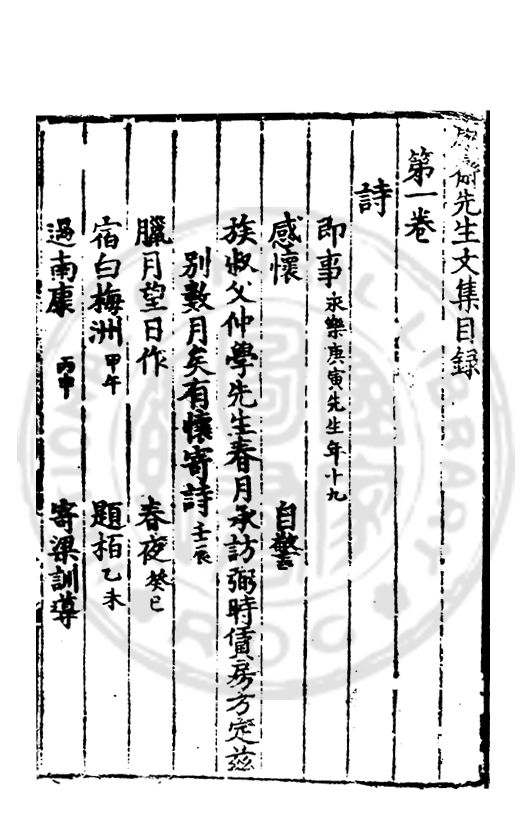 先生文集目録
第一卷
詩
即事 永樂庚寅先生年十九
感懷 自警
族叔父仲學先生春月承訪弼時房方定茲
別數月矣有懷寄詩 壬辰
臘月望日作 春夜 癸巳
宿白梅洲 甲午 題栢 乙未
過南康 丙申 寄梁訓導